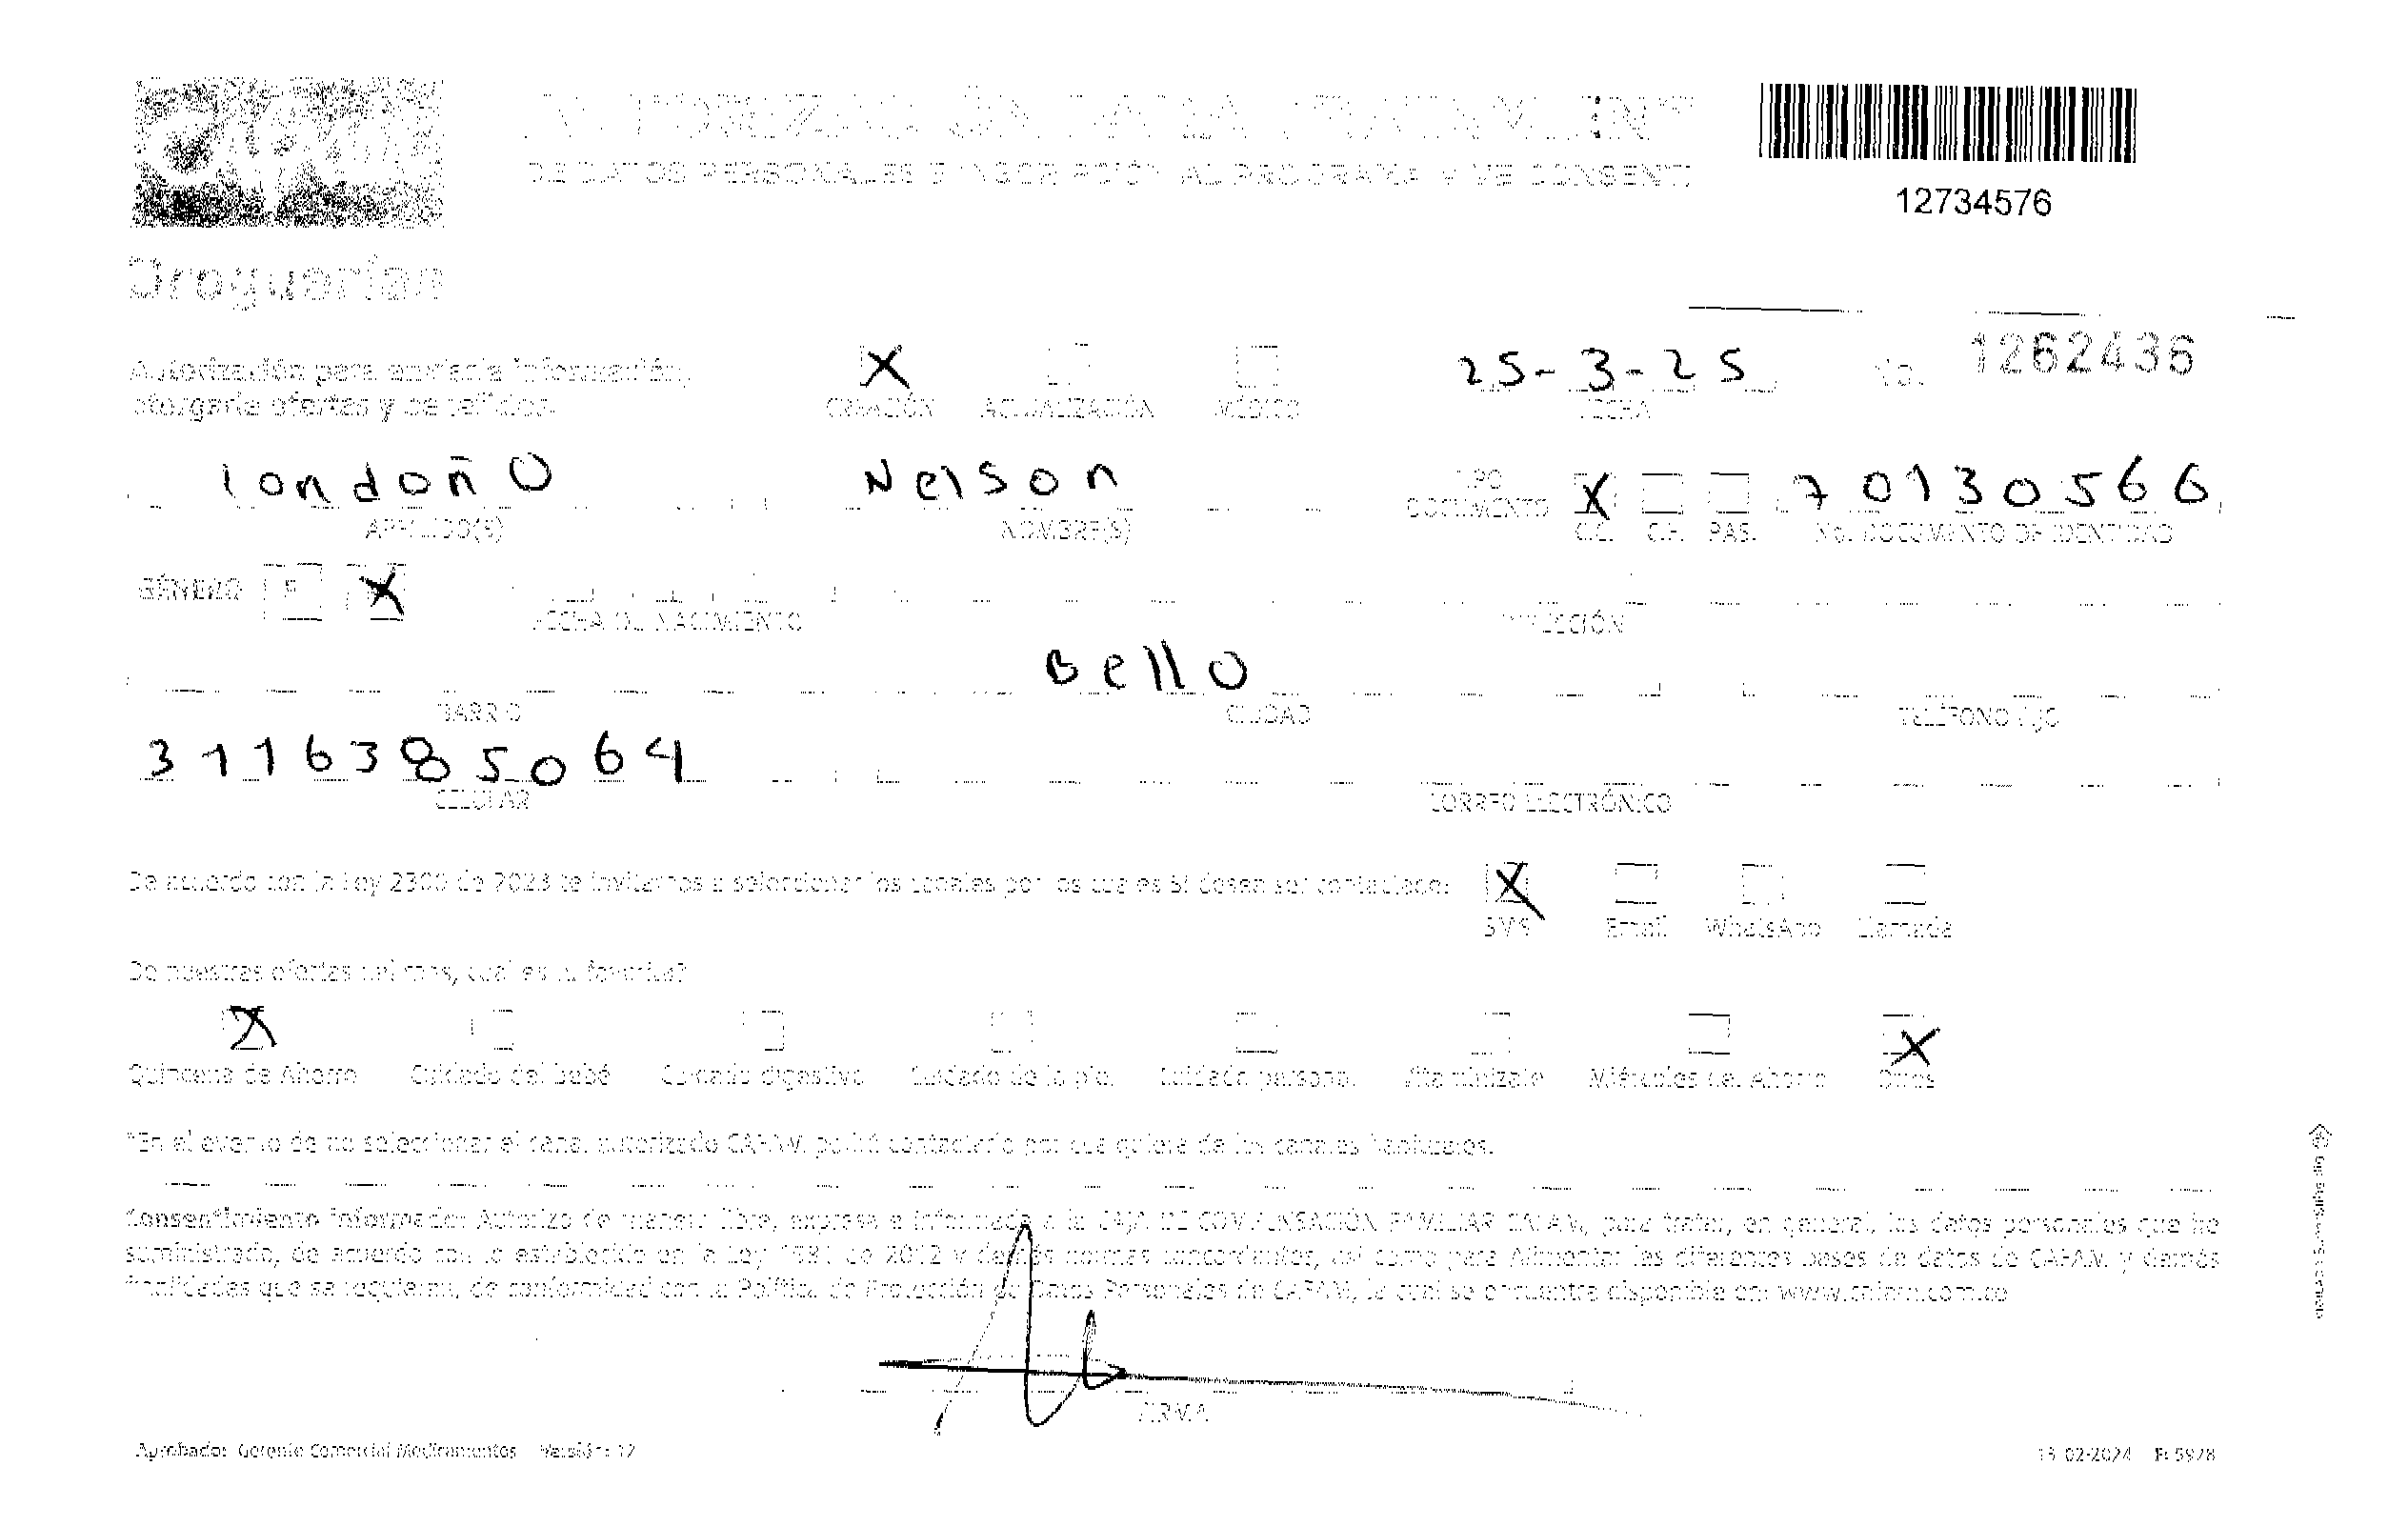 AUTORIZACIÓN PARA TRATAMIENT
DE DATOS PERSONALES E INSCRIPCIÓN AL PROGRAMA VIVE CONSENTI
12734576
Droguerías
Autorización para enviarle información,
otorgarle ofertas y beneficios.
X CREACIÓN ACTUALIZACIÓN MÉDICO
25-3-25
FECHA
No. 1262436
londoño Nelson
APELLIDO(S) NOMBRE(S)
TIPO DOCUMENTO X C.C. C.E. PAS. 70130566
No. DOCUMENTO DE IDENTIDAD
GÉNERO F X
FECHA DE NACIMIENTO DIRECCIÓN
Bello
BARRIO CIUDAD TELÉFONO FIJO
3116385064
CELULAR CORREO ELECTRÓNICO
De acuerdo con la Ley 2300 de 2023 te invitamos a seleccionar los canales por los cuales SI deseas ser contactado: X
SMS Email WhatsApp Llamada
De nuestras ofertas del mes, cuál es tu favorita?
X X
Quincena de Ahorro Cuidado del bebé Cuidado digestivo Cuidado de la piel Cuidado personal Vitamínizate Miércoles del Ahorro Otros
*En el evento de no seleccionar el canal autorizado CAFAM podrá contactarlo por cualquiera de los canales habituales.
Consentimiento informado: Autorizo de manera libre, expresa e informada a la CAJA DE COMPENSACIÓN FAMILIAR CAFAM, para tratar, en general, los datos personales que he
suministrado, de acuerdo con lo establecido en la Ley 1581 de 2012 y demás normas concordantes, así como para Alimentar las diferentes bases de datos de CAFAM y demás
finalidades que se requieran, de conformidad con la Política de Protección de Datos Personales de CAFAM, la cual se encuentra disponible en: www.cafam.com.co
FIRMA
Aprobado: Gerente Comercial Medicamentos Versión: 12
13-02-2024 F: 5928